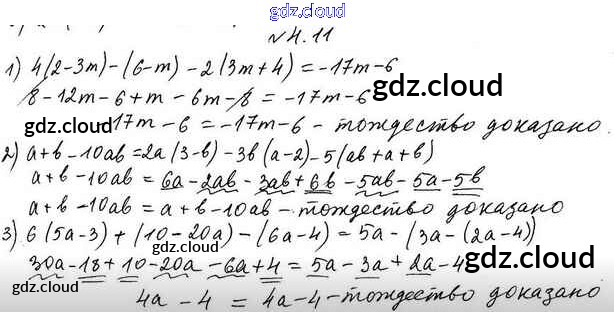 gdz.cloud
№ 4.11
1) 4(2-3m)-(6-m)-2(3m+4)=-17m-6
gdz.cloud
8-12m-6+m-6m-8=-17m-6
gdz.cloud
-17m-6=-17m-6-тождество доказано.
2) a+b-10ab=2a(3-b)-3b(a-2)-5(ab+a+b)
a+b-10ab=6a-2ab-3ab+6b-5ab-5a-5b
a+b-10ab=a+b-10ab-тождество доказано
gdz.cloud
3) 6(5a-3)+(10-20a)-(6a-4)=5a-(3a-(2a-4))
gdz.cloud
30a-18+10-20a-6a+4=5a-3a+2a-4
gdz.cloud
4a-4=4a-4-тождество доказано
gdz.cloud
gdz.cloud